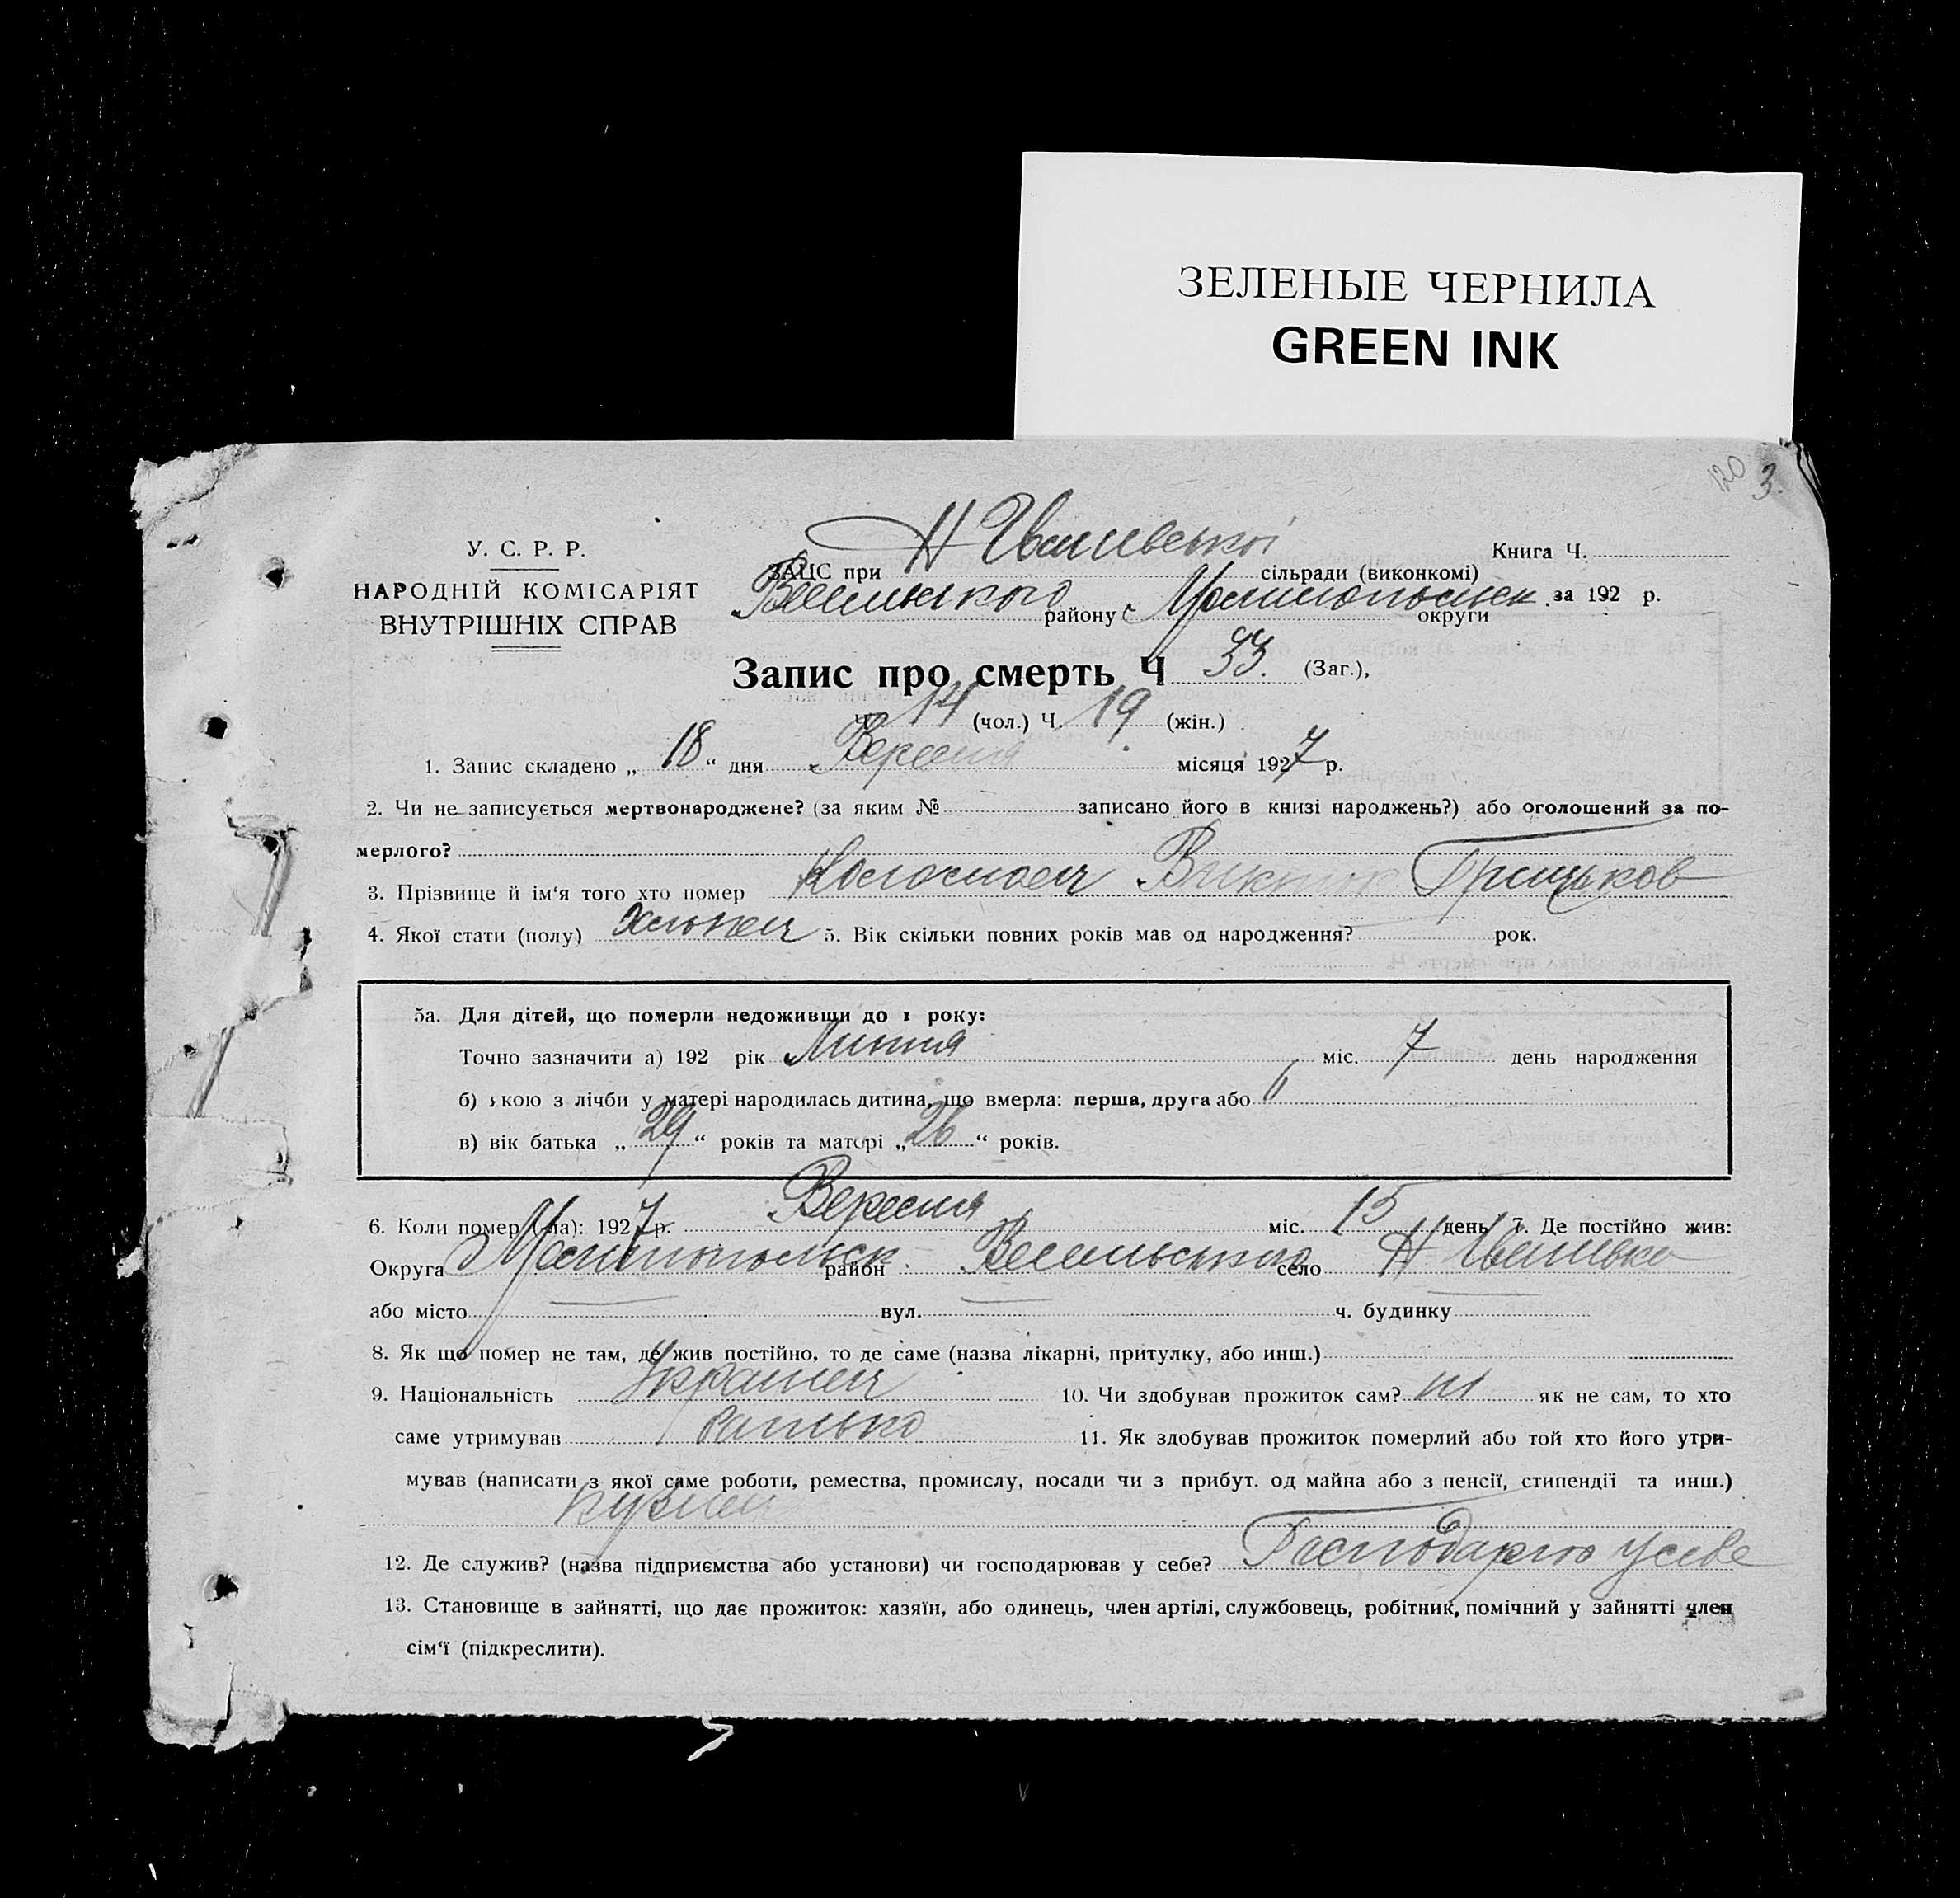 ЗЕЛЕНЫЕ ЧЕРНИЛА
GREEN INK
120 3.
У. С. Р. Р.
НАРОДНІЙ КОМІСАРІЯТ
ВНУТРІШНІХ СПРАВ
Книга Ч.
ЗАЦС при Н Іванівської сільради (виконкомі)
району округи за 192 р.
Запис про смерть Ч 33. (Заг.),
Ч. 14 (чол.) Ч. 19 (жін.)
1. Запис складено „ 18 “ дня Вересня місяця 1927 р.
2. Чи не записується мертвонароджене? (за яким № записано його в книзі народжень?) або оголошений за по-
мерлого?
3. Прізвище й ім‘я того хто помер Виктор Грицьков
4. Якої стати (полу) 5. Вік скільки повних років мав од народження? рок.
5а. Для дітей, що померли недоживши до 1 року:
Точно зазначити а) 192 рік Липня міс. 7 день народження
б) якою з лічби у матері народилась дитина, що вмерла: перша, друга або
в) вік батька „ 29 “ років та матері „ 26 “ років.
6. Коли помер (ла): 1927 р. Вересня міс. 15 день 7. Де постійно жив:
Округа район село Н Іванівка
або місто вул. ч. будинку
8. Як що помер не там, де жив постійно, то де саме (назва лікарні, притулку, або инш.)
9. Національність 10. Чи здобував прожиток сам? ні як не сам, то хто
саме утримував батько 11. Як здобував прожиток померлий або той хто його утри-
мував (написати з якої саме роботи, ремества, промислу, посади чи з прибут. од майна або з пенсії, стипендії та инш.)
12. Де служив? (назва підприємства або установи) чи господарював у себе? Господарює у себе
13. Становище в зайнятті, що дає прожиток: хазяїн, або одинець, член артілі, службовець, робітник, помічний у зайнятті член
сім‘ї (підкреслити).